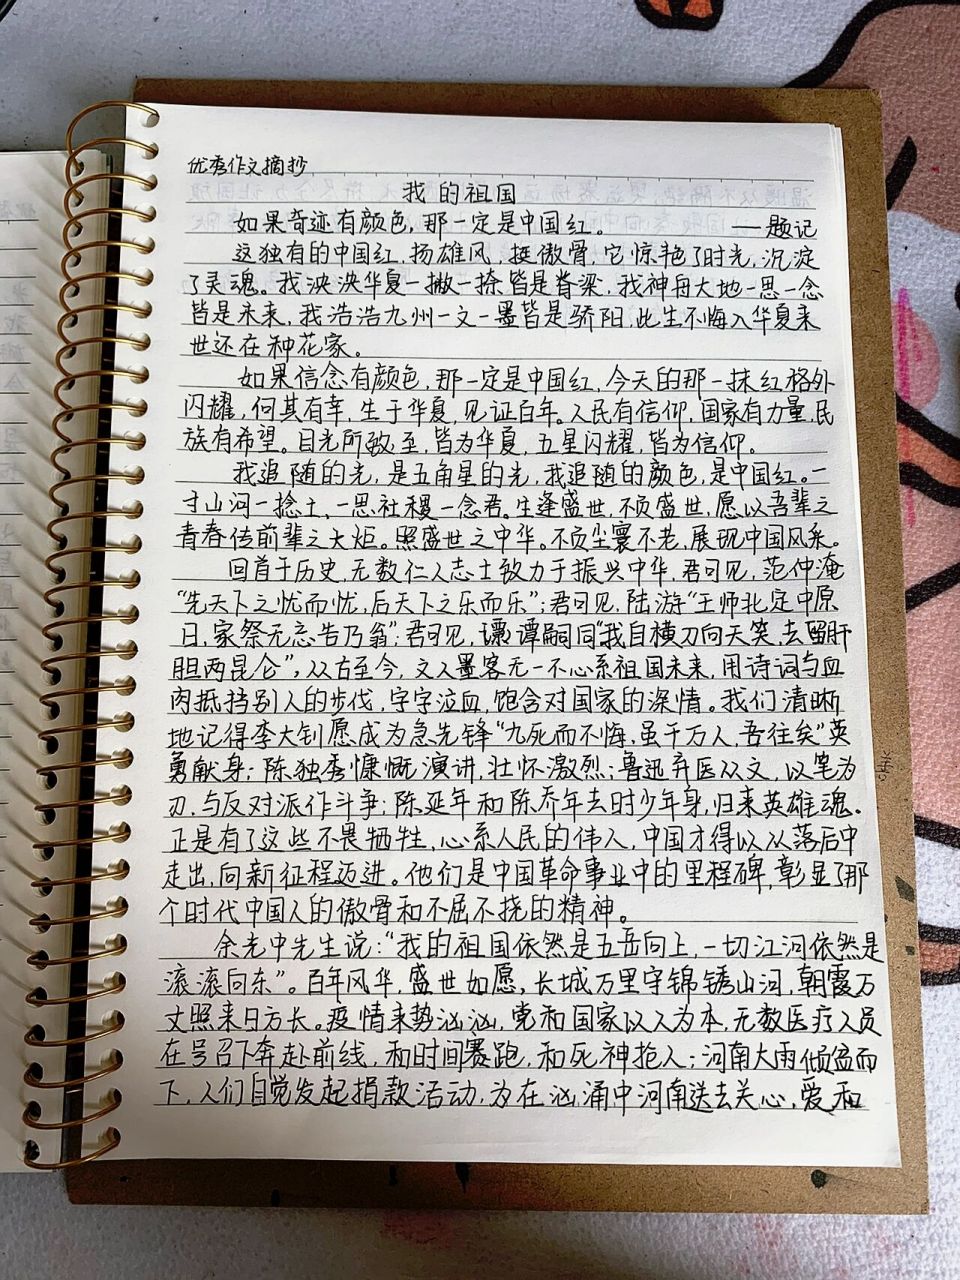 优秀作文摘抄
我的祖国
如果奇迹有颜色，那一定是中国红。 ——题记
这独有的中国红，扬雄风，挺傲骨，它惊艳了时光，沉淀
了灵魂。我泱泱华夏一撇一捺皆是脊梁，我神舟大地一思一念
皆是未来，我浩浩九州一文一墨皆是骄阳，此生不悔入华夏来
世还在种花家。
如果信念有颜色，那一定是中国红，今天的那一抹红格外
闪耀，何其有幸，生于华夏，见证百年。人民有信仰，国家有力量，民
族有希望。目光所致至，皆为华夏，五星闪耀，皆为信仰。
我追随的光，是五角星的光，我追随的颜色，是中国红。一
寸山河一捻土，一思社稷一念君。生逢盛世，不负盛世，愿以吾辈之
青春传前辈之大炬。照盛世之中华。不负尘寰不老，展现中国风采。
回首于历史，无数仁人志士致力于振兴中华，君可见，范仲淹
“先天下之忧而忧，后天下之乐而乐”；君可见，陆游“王师北定中原
日，家祭无忘告乃翁”；君可见，谭嗣同“我自横刀向天笑，去留肝
胆两昆仑”，从古至今，文人墨客无一不心系祖国未来，用诗词与血
肉抵挡别人的步伐，字字泣血，饱含对国家的深情。我们清晰
地记得李大钊愿成为急先锋“九死而不悔，虽千万人，吾往矣”英
勇献身；陈独秀慷慨演讲，壮怀激烈；鲁迅弃医从文，以笔为
刃，与反对派作斗争；陈延年和陈乔年去时少年身，归来英雄魂。
正是有了这些不畏牺牲，心系人民的伟人，中国才得以从落后中
走出，向新征程迈进。他们是中国革命事业中的里程碑，彰显了那
个时代中国人的傲骨和不屈不挠的精神。
余光中先生说：“我的祖国依然是五岳向上，一切江河依然是
滚滚向东”。百年风华，盛世如愿，长城万里守锦锈山河，朝霞万
丈照来日方长。疫情来势汹汹，党和国家以人为本，无数医疗人员
在号召下奔赴前线，和时间赛跑，和死神抢人；河南大雨倾盆而
下，人们自觉发起捐款活动，为在汹涌中河南送去关心，爱和